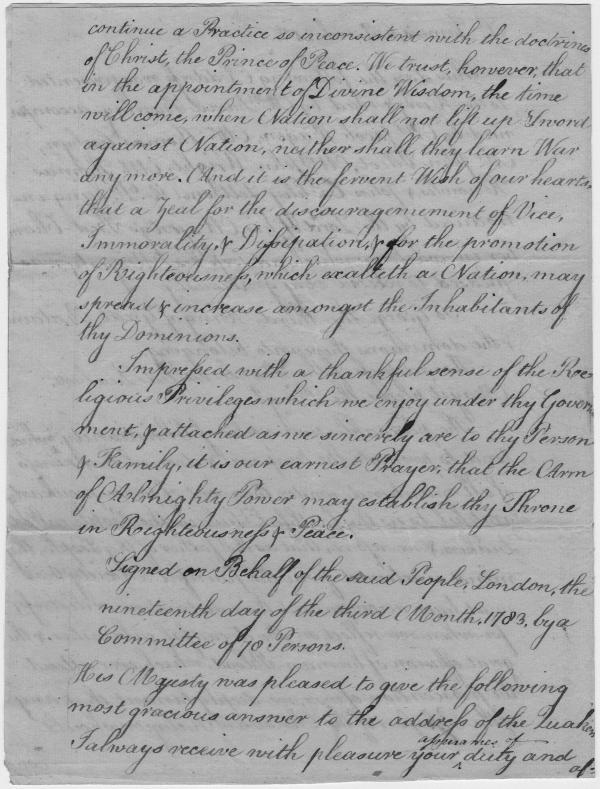 continue a Practice so inconsistent with the doctrines
of Christ, the Prince of Peace. We trust, however, that
in the appointment of Divine Wisdom, the time
will come, when Nation shall not lift up Sword
against Nation, neither shall they learn War
any more. And it is the fervent Wish of our hearts,
that a Zeal for the discouragemement of Vice,
Immorality, & Dissipation, & for the promotion
of Righteousness, which exalteth a Nation, may
spread & increase amongst the Inhabitants of
thy Dominions.
Impressed with a thankful sense of the Re=
ligious Privileges which we enjoy under thy Govern
ment, & attached as we sincerely are to thy Person
& Family, it is our earnest Prayer, that the Arm
of Almighty Power may establish thy Throne
in Righteousness & Peace.
Signed on Behalf of the said People, London, the
nineteenth day of the third Month, 1783, by a
Committee of 18 Persons.
His Majesty was pleased to give the following
most gracious answer to the address of the Quakers
assurances of
I always receive with pleasure your ^ duty and
af=